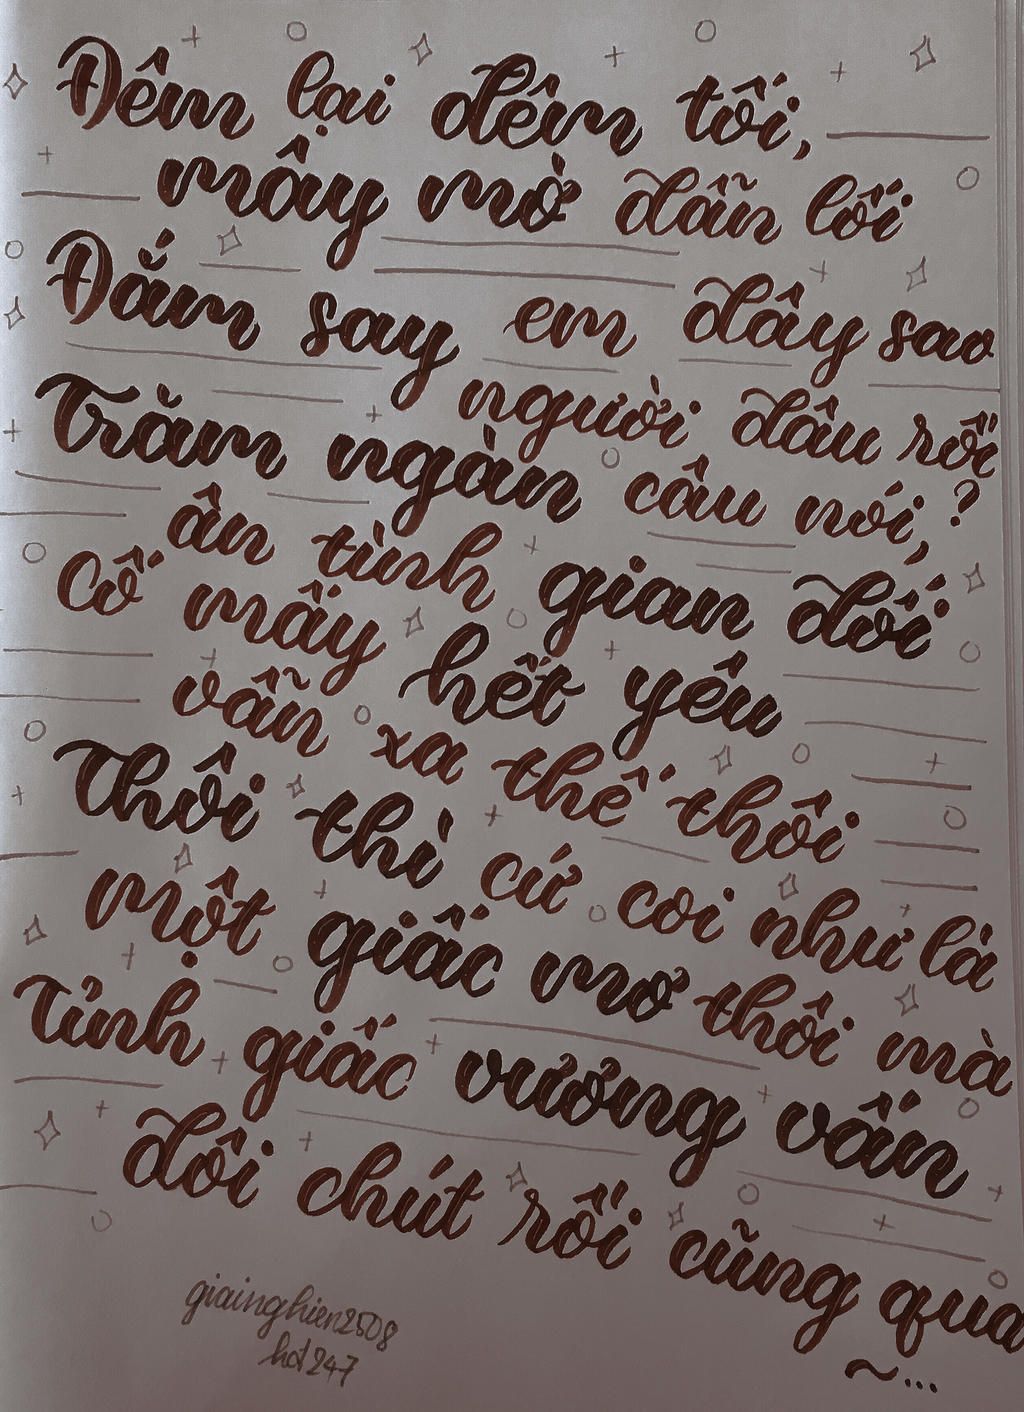 Đêm lại đêm tối,
mây mờ dẫn lối
Đắm say em đây sao
người đâu rồi?
Trăm ngàn câu nói,
ân tình gian dối
Cố mấy hết yêu
vẫn xa thế thôi
Thôi thì cứ coi như là
một giấc mơ thôi mà
Tỉnh giấc vương vấn
đôi chút rồi cũng qua
~...
giainghien2508
hd247